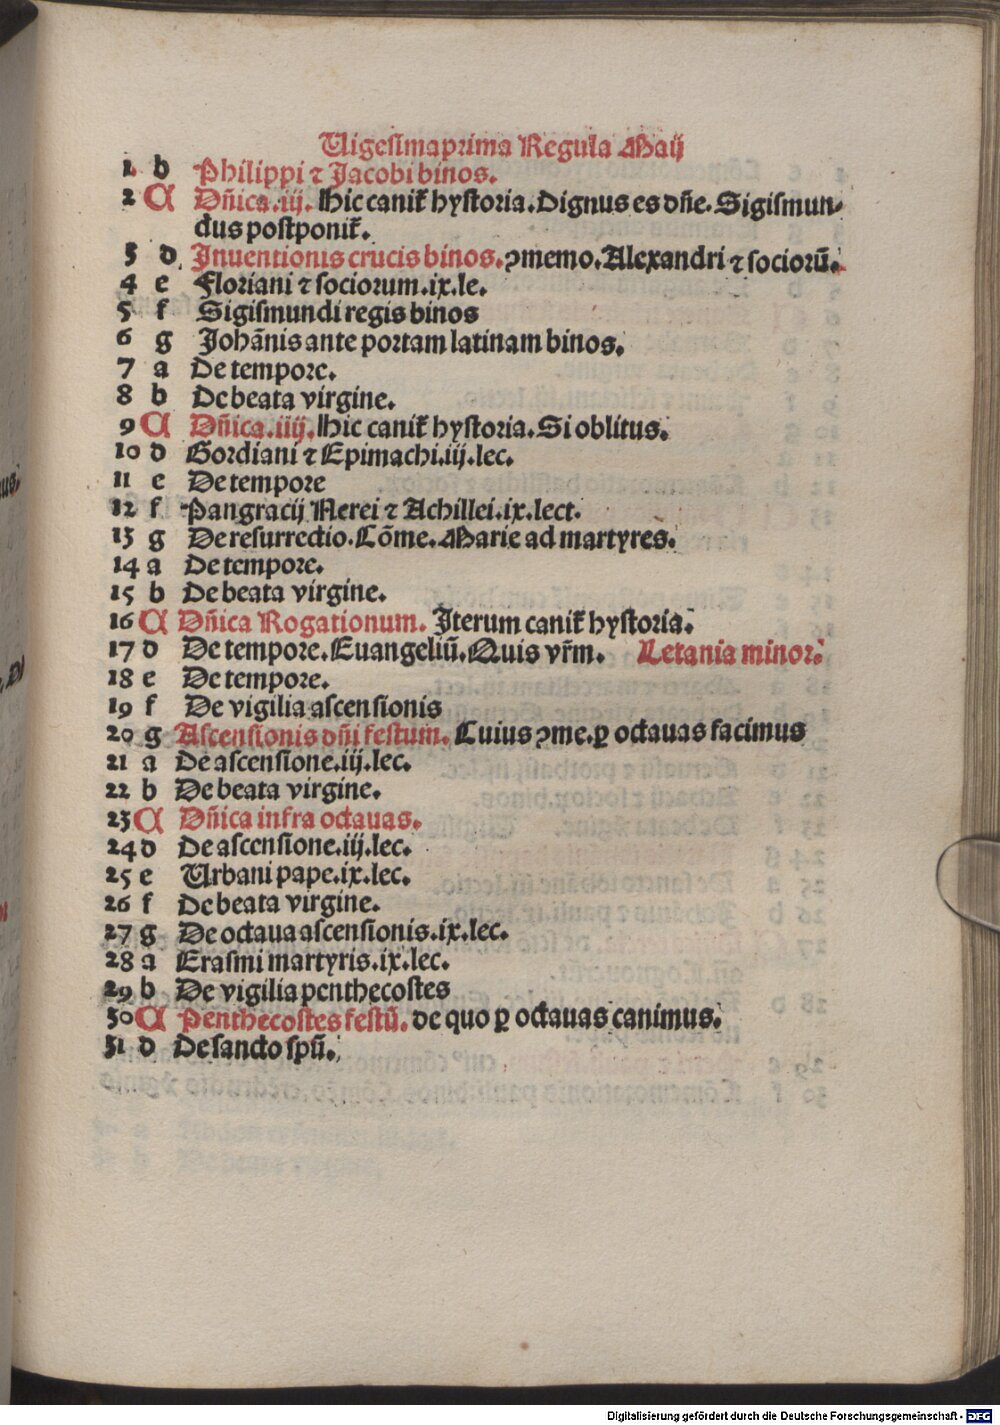 Uigesimaprima Regula Maij
1 b Philippi ⁊ Jacobi binos.
2 C Dn̄ica.iij. Hic canit᷑ hystoria. Dignus es dn̄e. Sigismun-
dus postponit᷑.
3 d Inuentionis crucis binos. ꝯmemo. Alexandri ⁊ socioru̅.
4 e Floriani ⁊ sociorum.ix.le.
5 f Sigismundi regis binos
6 g Joha̅nis ante portam latinam binos.
7 a De tempore.
8 b De beata virgine.
9 C Dn̄ica.iiij. Hic canit᷑ hystoria. Si oblitus.
10 d Gordiani ⁊ Epimachi.iij.lec.
11 e De tempore
12 f Pangracij Nerei ⁊ Achillei.ix.lect.
13 g De resurrectio. Co̅me. Marie ad martyres.
14 a De tempore.
15 b De beata virgine.
16 C Dn̄ica Rogationum. Iterum canit᷑ hystoria.
17 d De tempore. Euangeliu̅. Quis vr̄m. Letania minor.
18 e De tempore.
19 f De vigilia ascensionis
20 g Ascensionis dn̄i festum. Cuius ꝯme. ꝑ octauas facimus
21 a De ascensione.iij.lec.
22 b De beata virgine.
23 C Dn̄ica infra octauas.
24 d De ascensione.iij.lec.
25 e Urbani pape.ix.lec.
26 f De beata virgine.
27 g De octaua ascensionis.ix.lec.
28 a Erasmi martyris.ix.lec.
29 b De vigilia penthecostes
30 C Penthecostes festu̅. de quo ꝑ octauas canimus.
31 d De sancto spu̅.
Digitalisierung gefördert durch die Deutsche Forschungsgemeinschaft - DFG